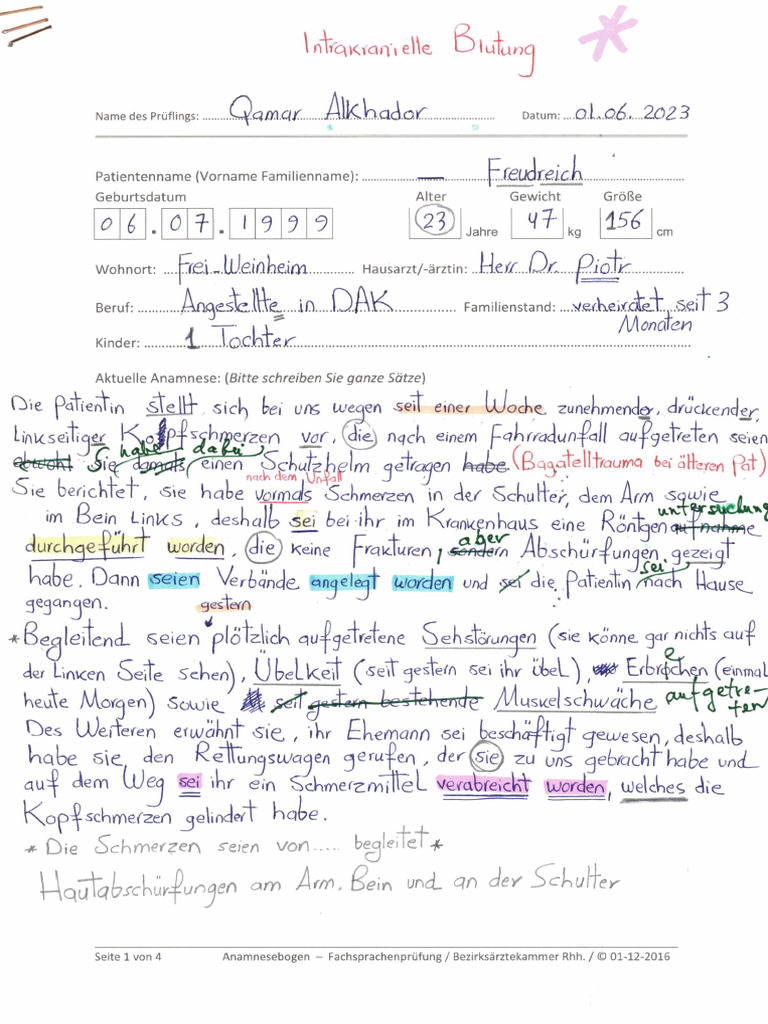 Intrakranielle Blutung
Name des Prüflings: Qamar Alkhador Datum: 01.06.2023
Patientenname (Vorname Familienname): — Freudreich
Geburtsdatum Alter Gewicht Größe
06.07.1999 23 Jahre 47 kg 156 cm
Wohnort: Frei-Weinheim Hausarzt/-ärztin: Herr Dr. Piotr
Beruf: Angestellte in DAK Familienstand: verheiratet seit 3
Monaten
Kinder: 1 Tochter
Aktuelle Anamnese: (Bitte schreiben Sie ganze Sätze)
Die Patientin stellt sich bei uns wegen seit einer Woche zunehmender, drückender,
linkseitiger Kopfschmerzen vor, die nach einem Fahrradunfall aufgetreten seien
obwohl Sie habe damals dabei einen Schutzhelm getragen habe (Bagatelltrauma bei älteren Pat)
nach dem Unfall
Sie berichtet, sie habe vormals Schmerzen in der Schulter, dem Arm sowie
im Bein Links, deshalb sei bei ihr im Krankenhaus eine Röntgenaufnahme untersuchung
durchgeführt worden, die keine Frakturen, sondern aber Abschürfungen gezeigt
habe. Dann seien Verbände angelegt worden und sei die Patientin sei nach Hause
gegangen.
gestern
*Begleitend seien plötzlich aufgetretene Sehstörungen (sie könne gar nichts auf
der Linken Seite sehen), Übelkeit (seit gestern sei ihr übel), Erbrechen (einmal
heute Morgen) sowie seit gestern bestehende Muskelschwäche aufgetreten
Des Weiteren erwähnt sie, ihr Ehemann sei beschäftigt gewesen, deshalb
habe sie den Rettungswagen gerufen, der sie zu uns gebracht habe und
auf dem Weg sei ihr ein Schmerzmittel verabreicht worden, welches die
Kopfschmerzen gelindert habe.
* Die Schmerzen seien von..... begleitet*
Hautabschürfungen am Arm, Bein und an der Schulter
Seite 1 von 4 Anamnesebogen – Fachsprachenprüfung / Bezirksärztekammer Rhh. / © 01-12-2016